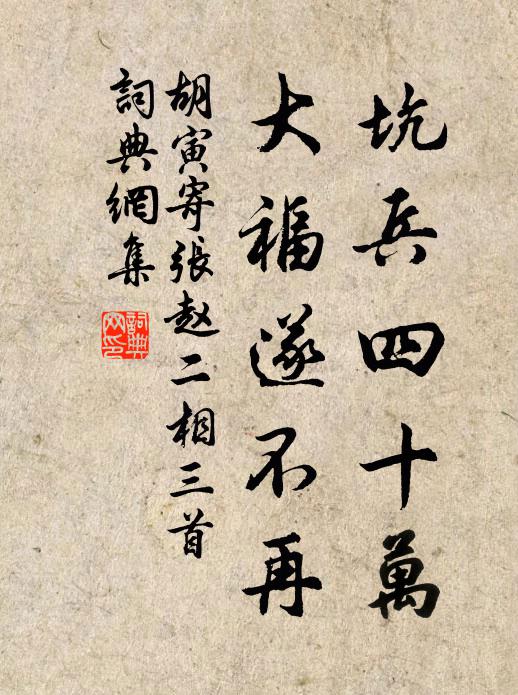 坑兵四十萬
大福遂不再
胡寅寄張赵二相三首
詞典網集
詞典网印